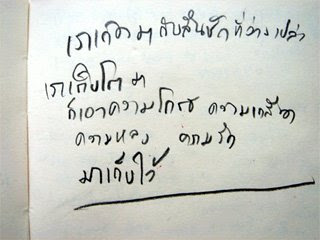 เราเกิดมา กับลิ้นชักที่ว่างเปล่า
เราเติบโตมา
ก็เอาความโกรธ ความเกลียด
ความหลง ความรัก
มาเก็บไว้